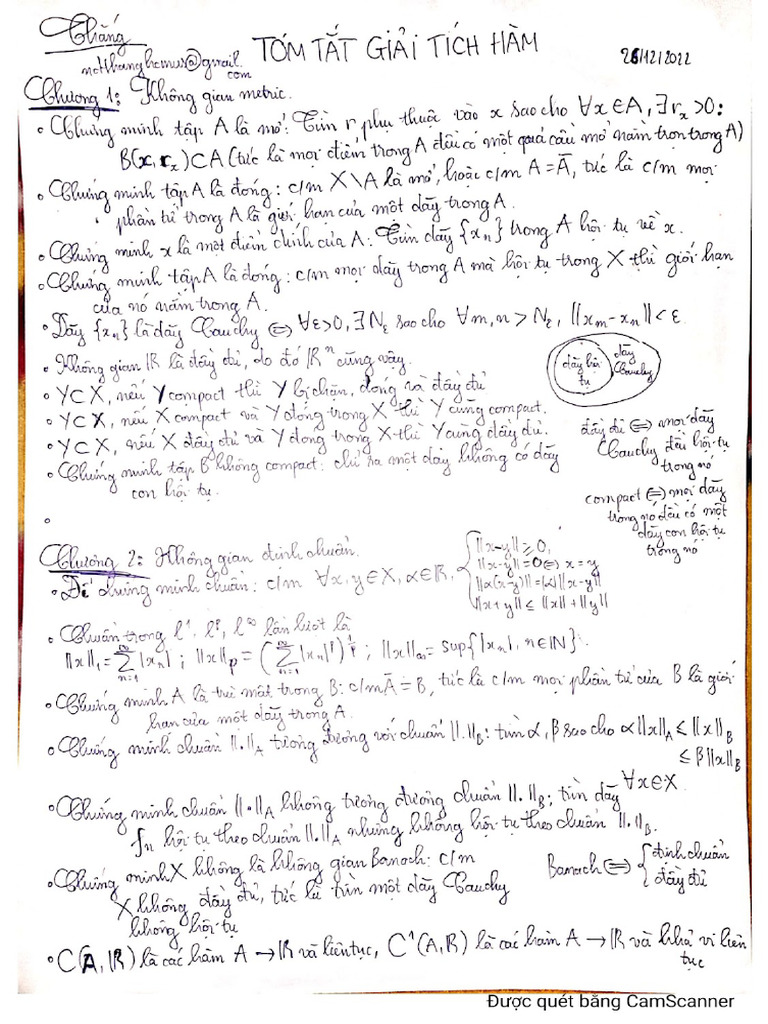 Thắng
ncthanghcmus@gmail.
com
TÓM TẮT GIẢI TÍCH HÀM
26/12/2022
Chương 1: Không gian metric.
• Chứng minh tập A là mở: Tìm r phụ thuộc vào x sao cho ∀x∈A, ∃ r_x >0:
B(x, r_x) ⊂ A (tức là mọi điểm trong A đều có một quả cầu mở nằm trọn trong A)
• Chứng minh tập A là đóng: c/m X\A là mở, hoặc c/m A = Ā, tức là c/m mọi
phần tử trong A là giới hạn của một dãy trong A.
• Chứng minh x là một điểm dính của A: Tìm dãy {x_n} trong A hội tụ về x.
• Chứng minh tập A là đóng: c/m mọi dãy trong A mà hội tụ trong X thì giới hạn
của nó nằm trong A.
• Dãy {x_n} là dãy Cauchy ⇔ ∀ε>0, ∃ N_ε sao cho ∀m,n > N_ε, ||x_m - x_n|| < ε
• Không gian ℝ là đầy đủ, do đó ℝ^n cũng vậy.
dãy hội
tụ
dãy
Cauchy
• Y⊂X, nếu Y compact thì Y bị chặn, đóng và đầy đủ
• Y⊂X, nếu X compact và Y đóng trong X thì Y cũng compact.
• Y⊂X, nếu X đầy đủ và Y đóng trong X thì Y cũng đầy đủ.
• Chứng minh tập B không compact: chỉ ra một dãy không có dãy
con hội tụ.
đầy đủ ⇔ mọi dãy
Cauchy đều hội tụ
trong nó
compact ⇔ mọi dãy
trong nó đều có một
dãy con hội tụ
trong nó
Chương 2: Không gian định chuẩn.
• Để chứng minh chuẩn: c/m ∀x,y∈X, α∈ℝ, { ||x-y|| ≥ 0,
||x-y|| = 0 ⇔ x = y
||α(x-y)|| = |α| ||x-y||
||x+y|| ≤ ||x|| + ||y||
• Chuẩn trong l^1, l^p, l^∞ lần lượt là
||x||_1 = ∑_{n=1}^∞ |x_n| ; ||x||_p = (∑_{n=1}^∞ |x_n|^p)^{1/p} ; ||x||_∞ = sup{|x_n|, n∈ℕ}.
• Chứng minh A là trù mật trong B: c/m Ā = B, tức là c/m mọi phần tử của B là giới
hạn của một dãy trong A.
• Chứng minh chuẩn ||.||_A tương đương với chuẩn ||.||_B: tìm α, β sao cho α||x||_A ≤ ||x||_B
≤ β||x||_B
∀x∈X.
• Chứng minh chuẩn ||.||_A không tương đương chuẩn ||.||_B: tìm dãy
f_n hội tụ theo chuẩn ||.||_A nhưng không hội tụ theo chuẩn ||.||_B.
• Chứng minh X không là không gian Banach: c/m
X không đầy đủ, tức là tìm một dãy Cauchy
không hội tụ
Banach ⇔ { định chuẩn
đầy đủ
• C(A,ℝ) là các hàm A → ℝ và liên tục, C^1(A,ℝ) là các hàm A → ℝ và khả vi liên
tục
Được quét bằng CamScanner